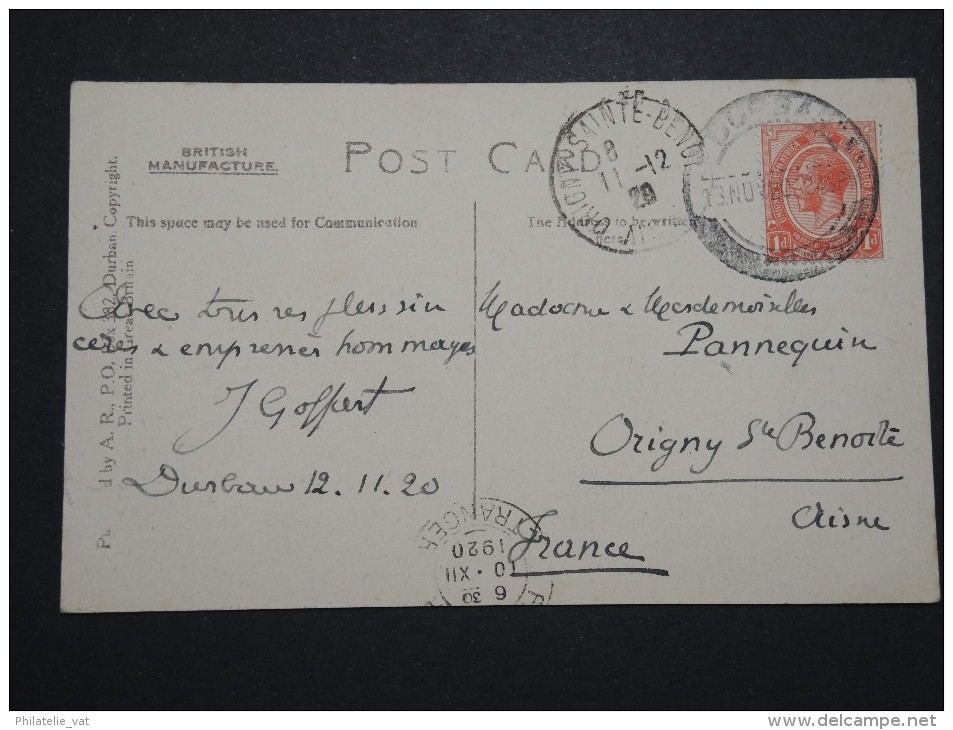 BRITISH
MANUFACTURE.
POST CARD
This space may be used for Communication
The Address to be written
here
d by A. R., P.O. Box 332, Durban Copyright.
Printed in Great Britain
Avec tous ses plus sin
cères & empressés hommages
J Goffart
Durban 12.11.20
Madame & Mesdemoiselles
Pannequin
Origny Ste Benoîte
Aisne
France
ORIGNY-SAINTE-BENOI
8
11 -12
20
13 NOV
1d 1d
ETRANGER
1920
0 · XII
6 30
Philatelie_vat
delcampe.net